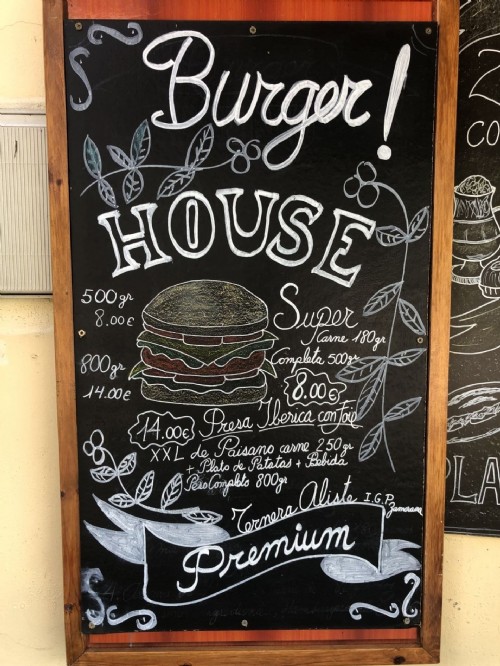 Burger!
HOUSE
500gr
8.00€
800gr
14.00€
Super
Carne 180gr
Completa 500gr
8.00€
14.00€ Presa Iberica con Foie
XXL de Paisano carne 250gr
+ Plato de Patatas + Bebida
Peso Completo 800gr
Ternera Aliste I.G.P.
Zamorana
Premium
CO
LA